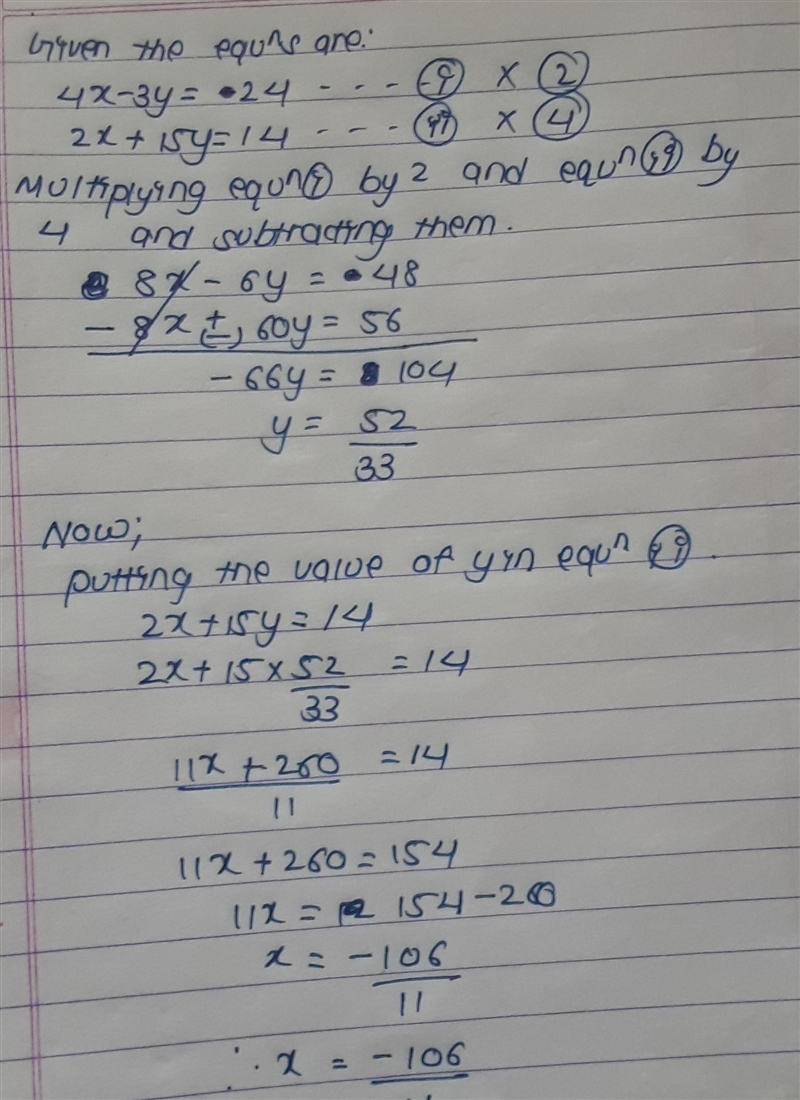 Given the equⁿs are:
4x-3y= 24 --- (i) × (2)
2x+15y=14 --- (ii) × (4)
Multiplying equⁿ(i) by 2 and equⁿ(ii) by
4 and subtracting them.
8x - 6y = 48
- 8x ± 60y = 56
(-)
-66y = 104
y = 52
33
Now;
putting the value of y in equⁿ (ii).
2x+15y=14
2x+15×52 =14
33
11x+260 =14
11
11x+260=154
11x = 154-260
x = -106
11
∴ x = -106